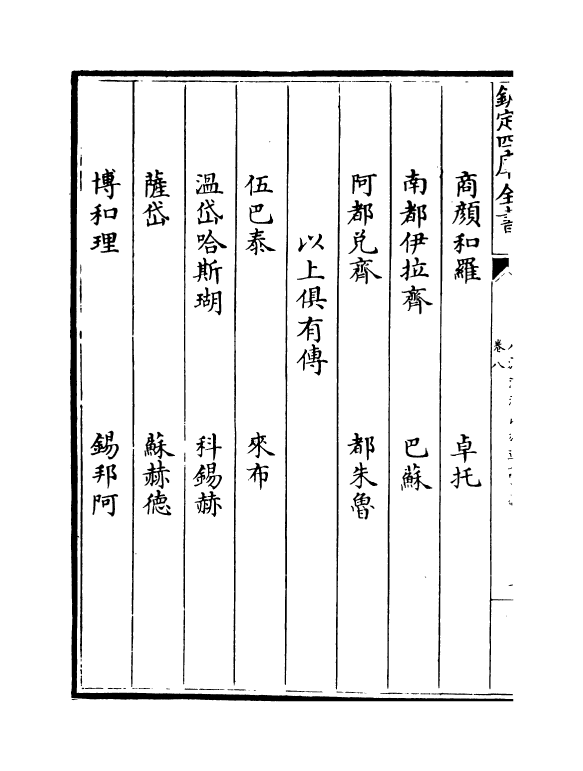 欽定四庫全書
卷八
商顔和羅　卓托
南都伊拉齊　巴蘇
阿都兊齊　都朱魯
以上俱有傳
伍巴泰　來布
溫岱哈斯瑚　科錫赫
薩岱　蘇赫德
博和理　錫邦阿